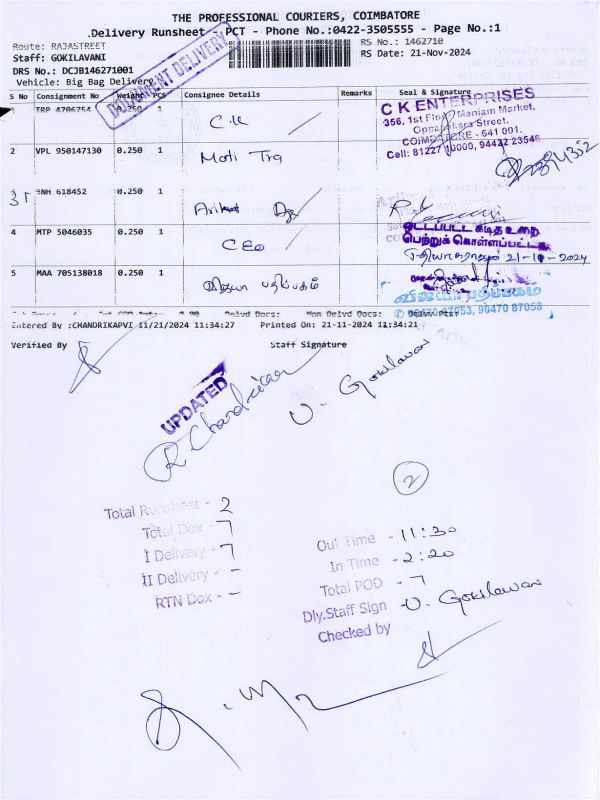 THE PROFESSIONAL COURIERS, COIMBATORE
Delivery Runsheet - PCT - Phone No.:0422-3505555 - Page No.:1
Route: RAJASTREET
RS No.: 1462710
Staff: GOKILAVANI
RS Date: 21-Nov-2024
DRS No.: DCJB146271001
Vehicle: Big Bag Delivery
DOCUMENT DELIVERY
S No Consignment No Weight PCS Consignee Details Remarks Seal & Signature
TRP 4706754 0.250 1 C.K
C K ENTERPRISES
356, 1st Floor, Maniam Market,
Oppanakara Street,
COIMBATORE - 641 001.
2 VPL 950147130 0.250 1 Moti Trg
3 SNH 618452 0.250 1
4 MTP 5046035 0.250 1 CEO
ஒட்டப்பட்ட கடித உறை
பெற்றுக் கொள்ளப்பட்டது
5 MAA 705138018 0.250 1 விஜயா பதிப்பகம்
விஜயா பதிப்பகம்
90470 87053, 90470 87058
Entered By :CHANDRIKAPVI 11/21/2024 11:34:27 Printed On: 21-11-2024 11:34:21
Verified By Staff Signature
UPDATED
R Chandrika
V. Gokilavani
2
Total Runsheet - 2
Total Dox - 7
I Delivery - 7
II Delivery - -
RTN Dox - -
Out Time - 11:30
In Time - 2:20
Total POD - 7
Dly.Staff Sign - V. Gokilavani
Checked by